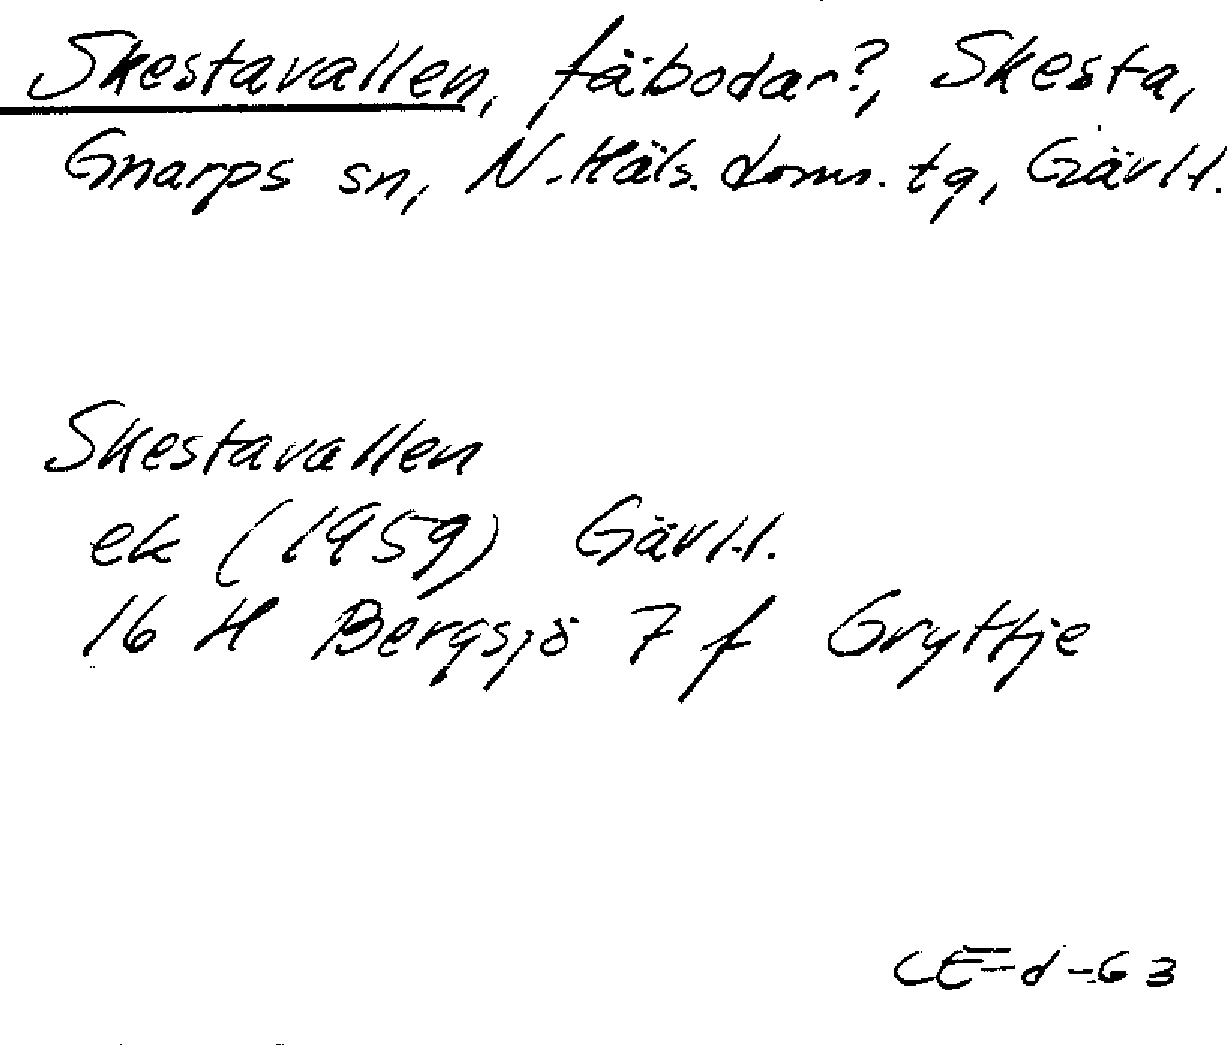 Skestavallen, fäbodar?, Skesta,
Gnarps sn, N. Häls. doms. tg, Gävl.
Skestavallen
ek (1959) Gävl.
16 H Bergsjö 7 f Gryttje
CE-d-63